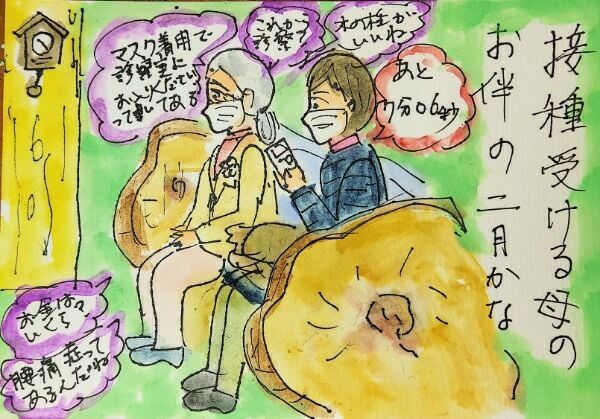 接種受ける母の
お伴の二月かな
木の椅が
いいね
これから
診察?
マスク着用で
診察室に
って書いてある
あと
7分06秒
お昼は
いくら
腰痛症って
あるんだね